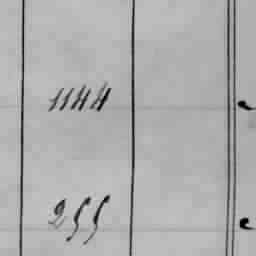 1144
255